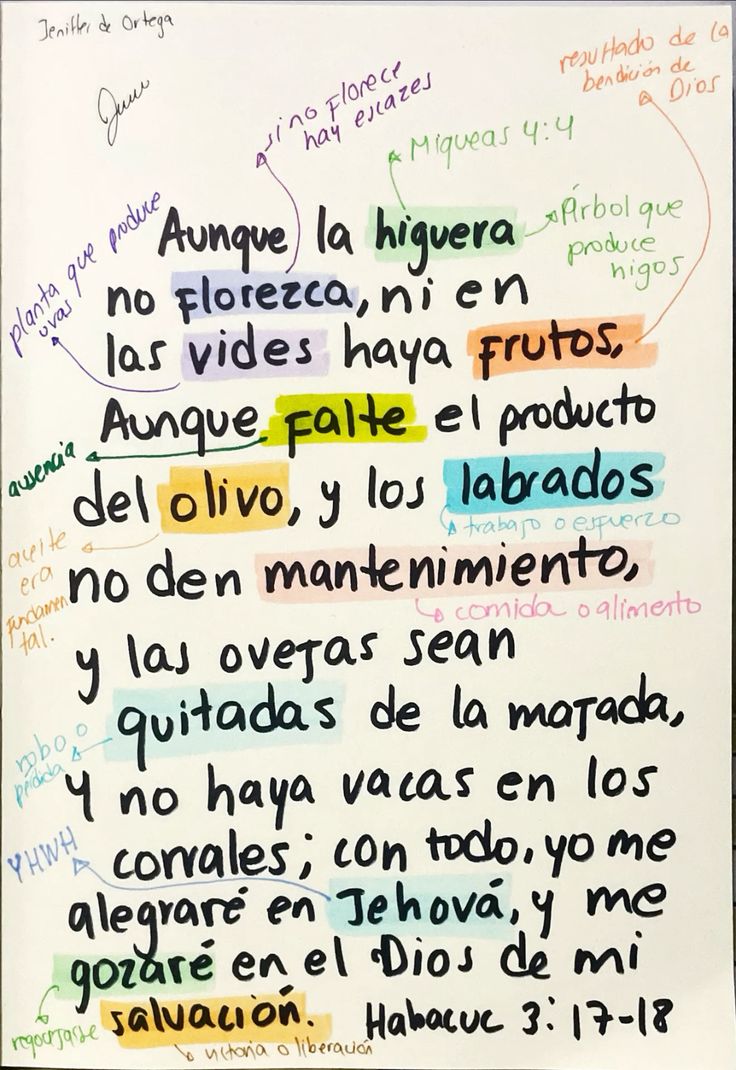 Jeniffer de Ortega
si no florece
hay escazes
resultado de la
bendición de
Dios
Miqueas 4:4
planta que produce
uvas
Árbol que
produce
higos
Aunque la higuera
no florezca, ni en
las vides haya frutos,
Aunque falte el producto
ausencia
del olivo, y los labrados
trabajo o esfuerzo
aceite
era
fundamen
tal.
no den mantenimiento,
comida o alimento
y las ovejas sean
quitadas de la majada,
robo o
pérdida
y no haya vacas en los
corrales; con todo, yo me
YHWH
alegraré en Jehová, y me
gozaré en el Dios de mi
regocijarse
salvación. Habacuc 3:17-18
victoria o liberación